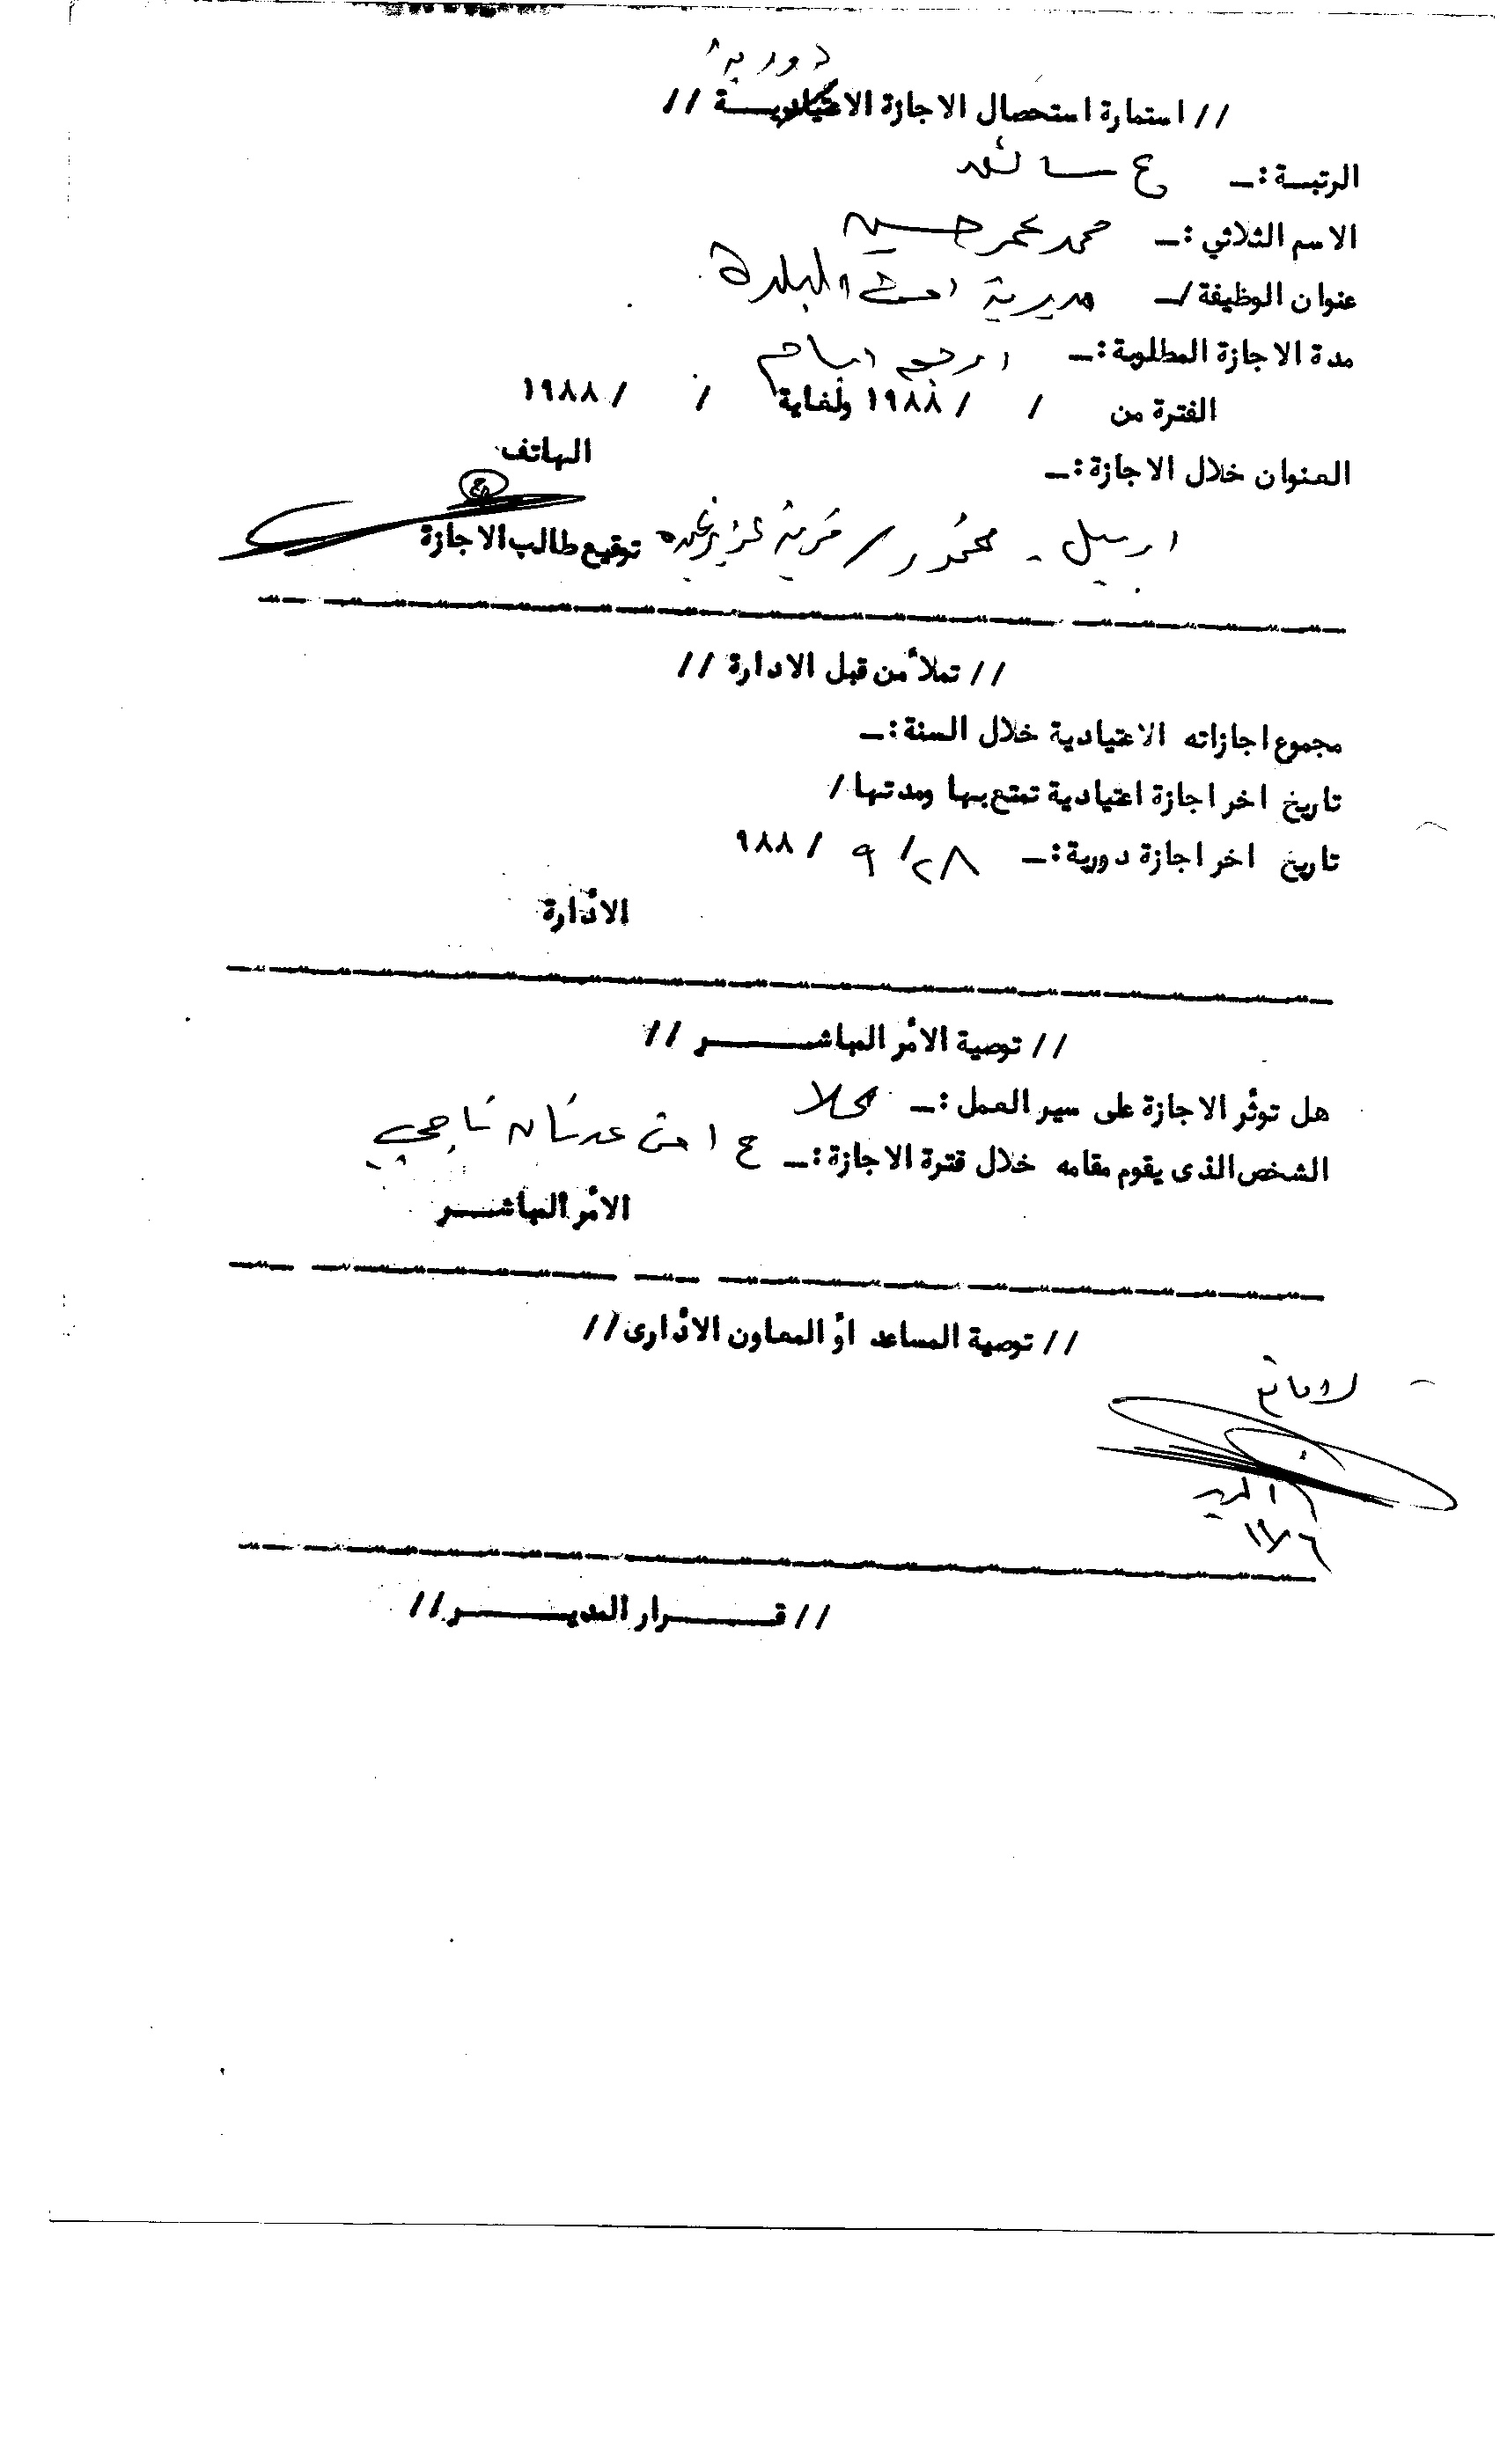 دورية
// استمارة استحصال الاجازة الاعتياديـــة //
الرتبـة :ـ ع سائق
الاسم الثلاثي :ـ محمد عمر حسين
عنوان الوظيفة /ـ مديرية امن البلدة
مدة الاجازة المطلوبة :ـ اربعة ايام
الفترة من / / ١٩٨٨ ولغاية / / ١٩٨٨
العنوان خلال الاجازة :ـ الهاتف
اربيل - مخمور / قرية توقيع طالب الاجازة
// تملأ من قبل الادارة //
مجموع اجازاته الاعتيادية خلال السنة :ـ
تاريخ اخر اجازة اعتيادية تمتع بها ومدتها /
تاريخ اخر اجازة دورية :ـ ٢٨/ ٩ / ٩٨٨
الأدارة
// توصية الأمر المباشـــــر //
هل توثر الاجازة على سير العمل :ـ كلا
الشخص الذى يقوم مقامه خلال فترة الاجازة :ـ ع امن عدنان ناجي
الأمر المباشـــر
// توصية المساعد أو المعاون الأدارى //
لا مانع
// قـــــرار المديـــــر //